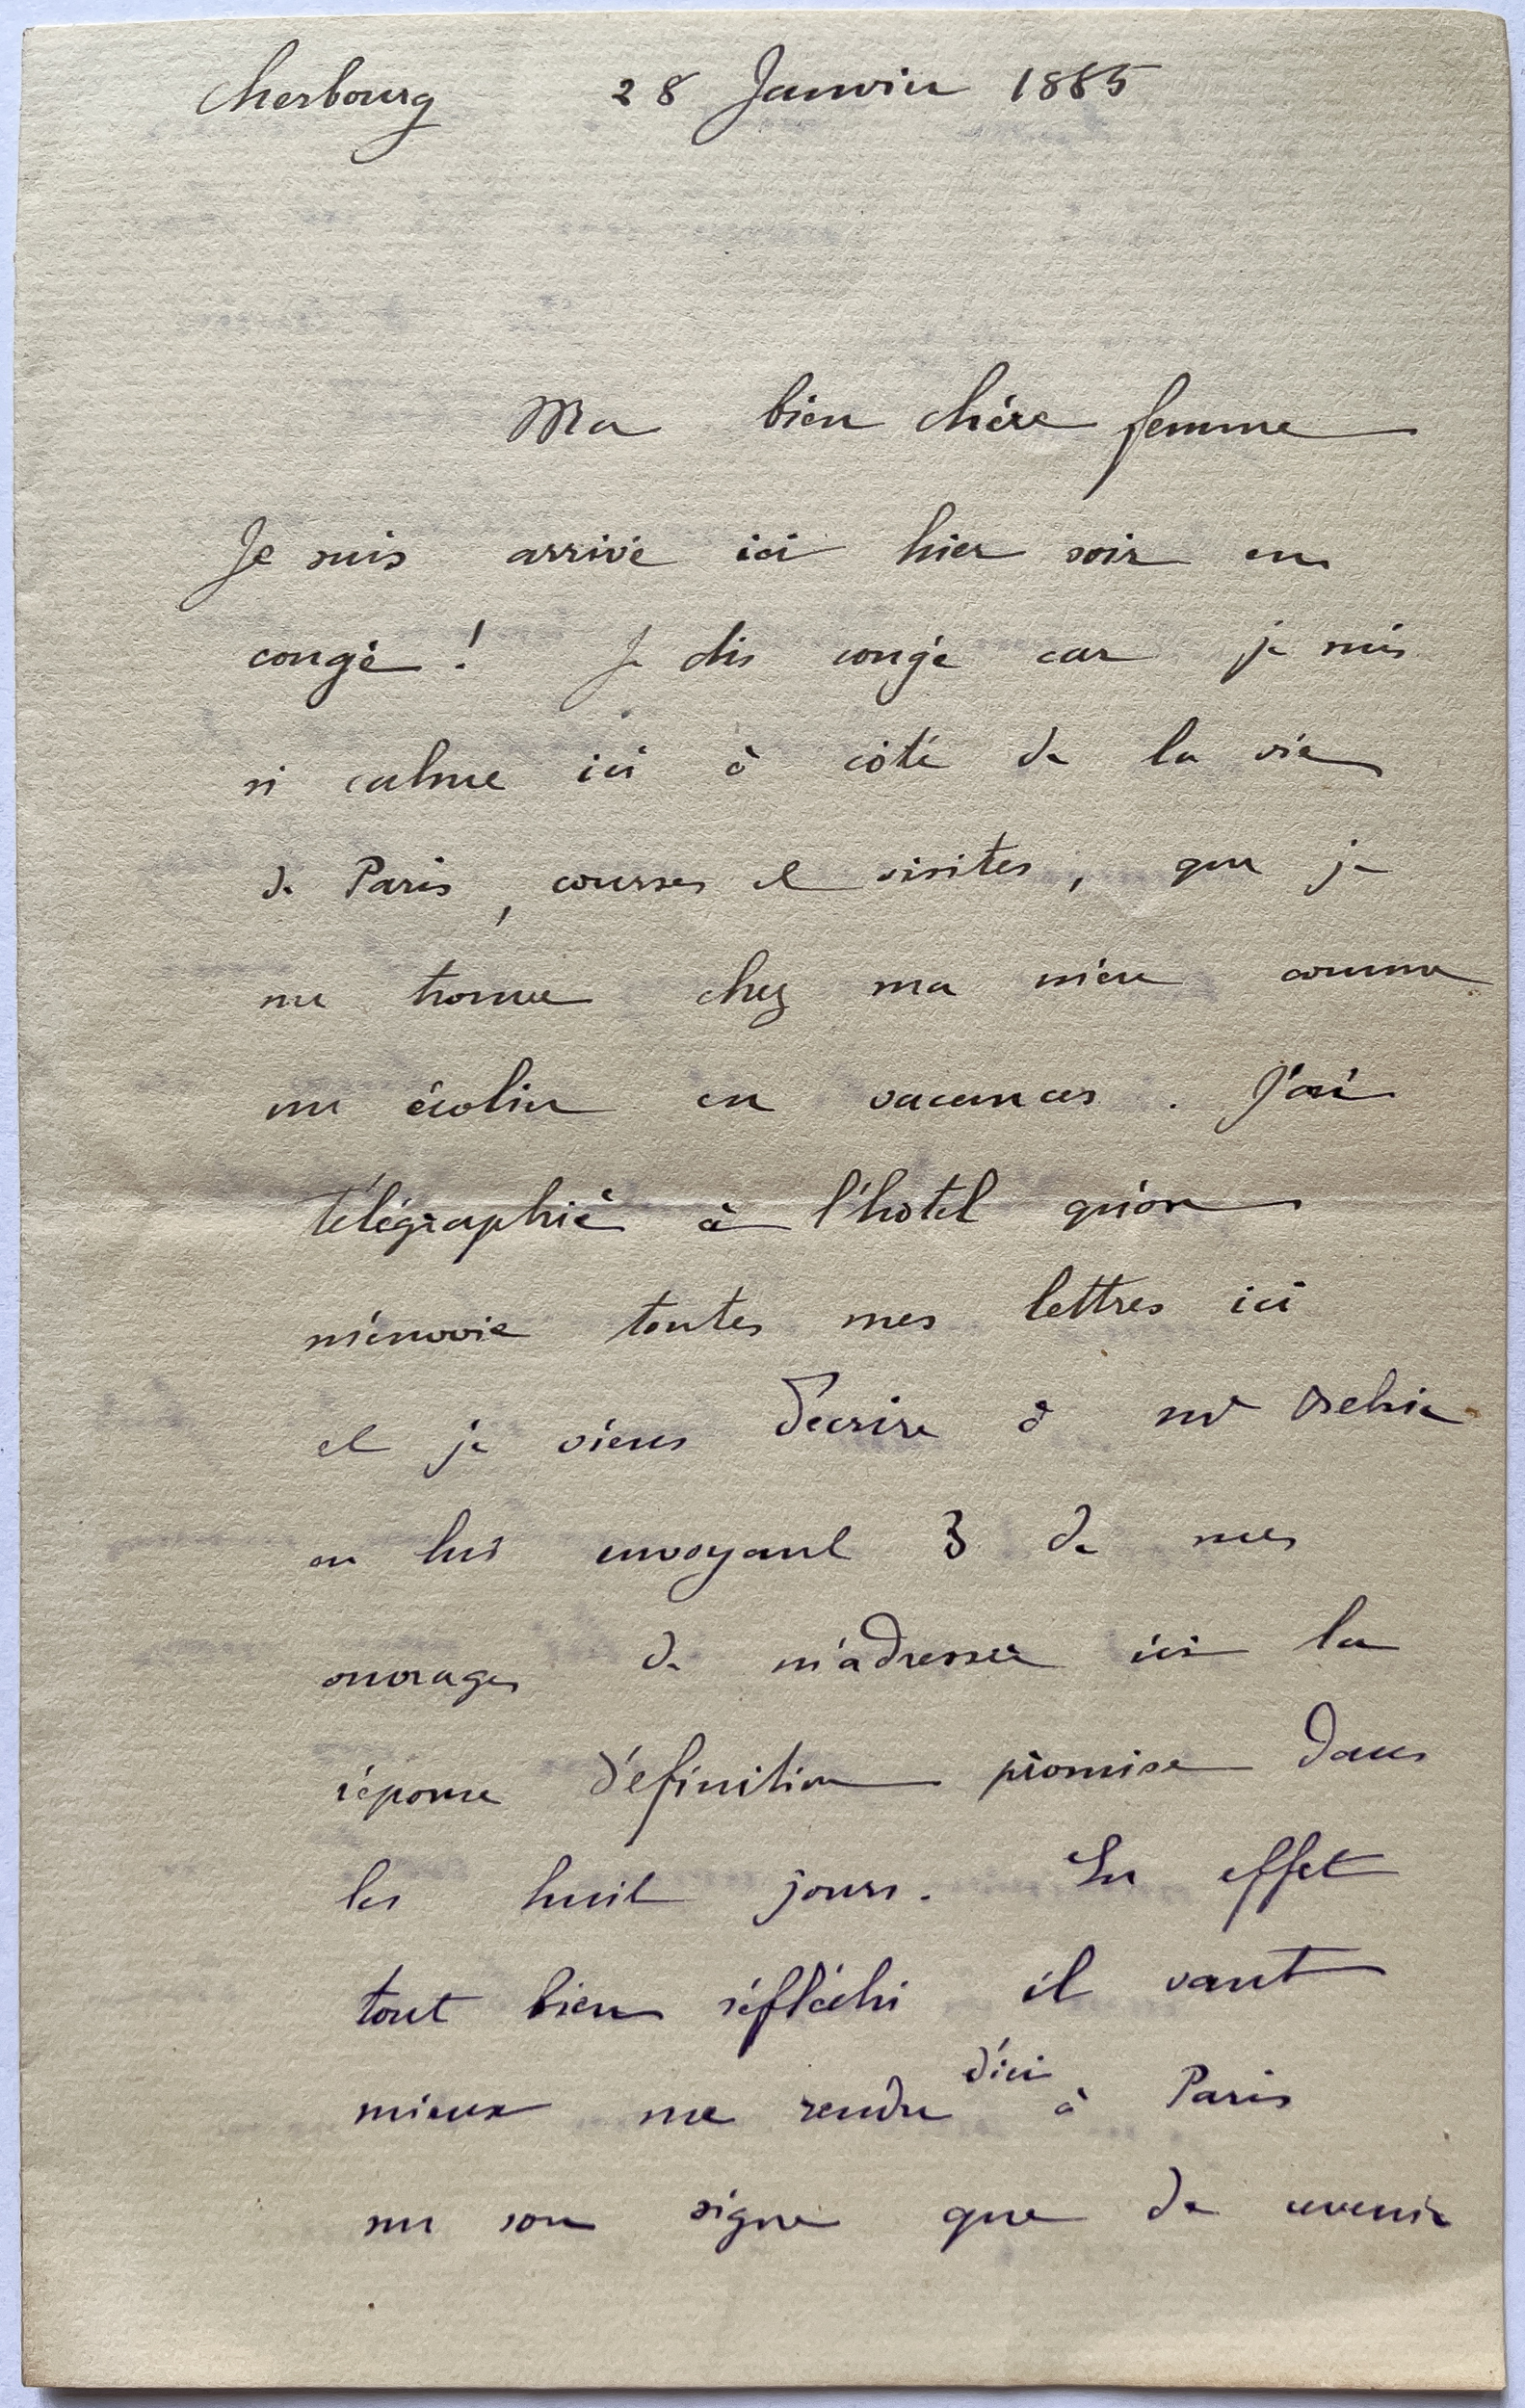 Cherbourg 28 Janvier 1885
Ma bien chère femme
Je suis arrivé ici hier soir en
congé ! Je dis congé car je suis
si calme ici à côté de la vie
de Paris, courses et visites, que je
me trouve chez ma mère comme
un écolier en vacances. J'ai
télégraphié à l'hotel qu'on
m'envoie toutes mes lettres ici
et je viens d'écrire à Mr
en lui envoyant 3 de mes
ouvrages de m'adresser ici la
réponse définitive promise dans
les huit jours. En effet
tout bien réfléchi il vaut
mieux me rendre d'ici à Paris
sur son signe que de revenir